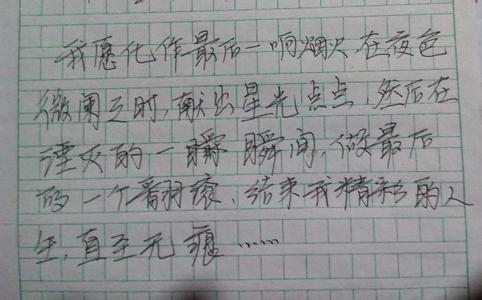 我愿化作最后一响烟火.在夜色
微阑之时,献出星光点点,然后在
湮灭的一瞬间,做最后
的一个翻滚.结束我精彩的人
生,直至无痕……